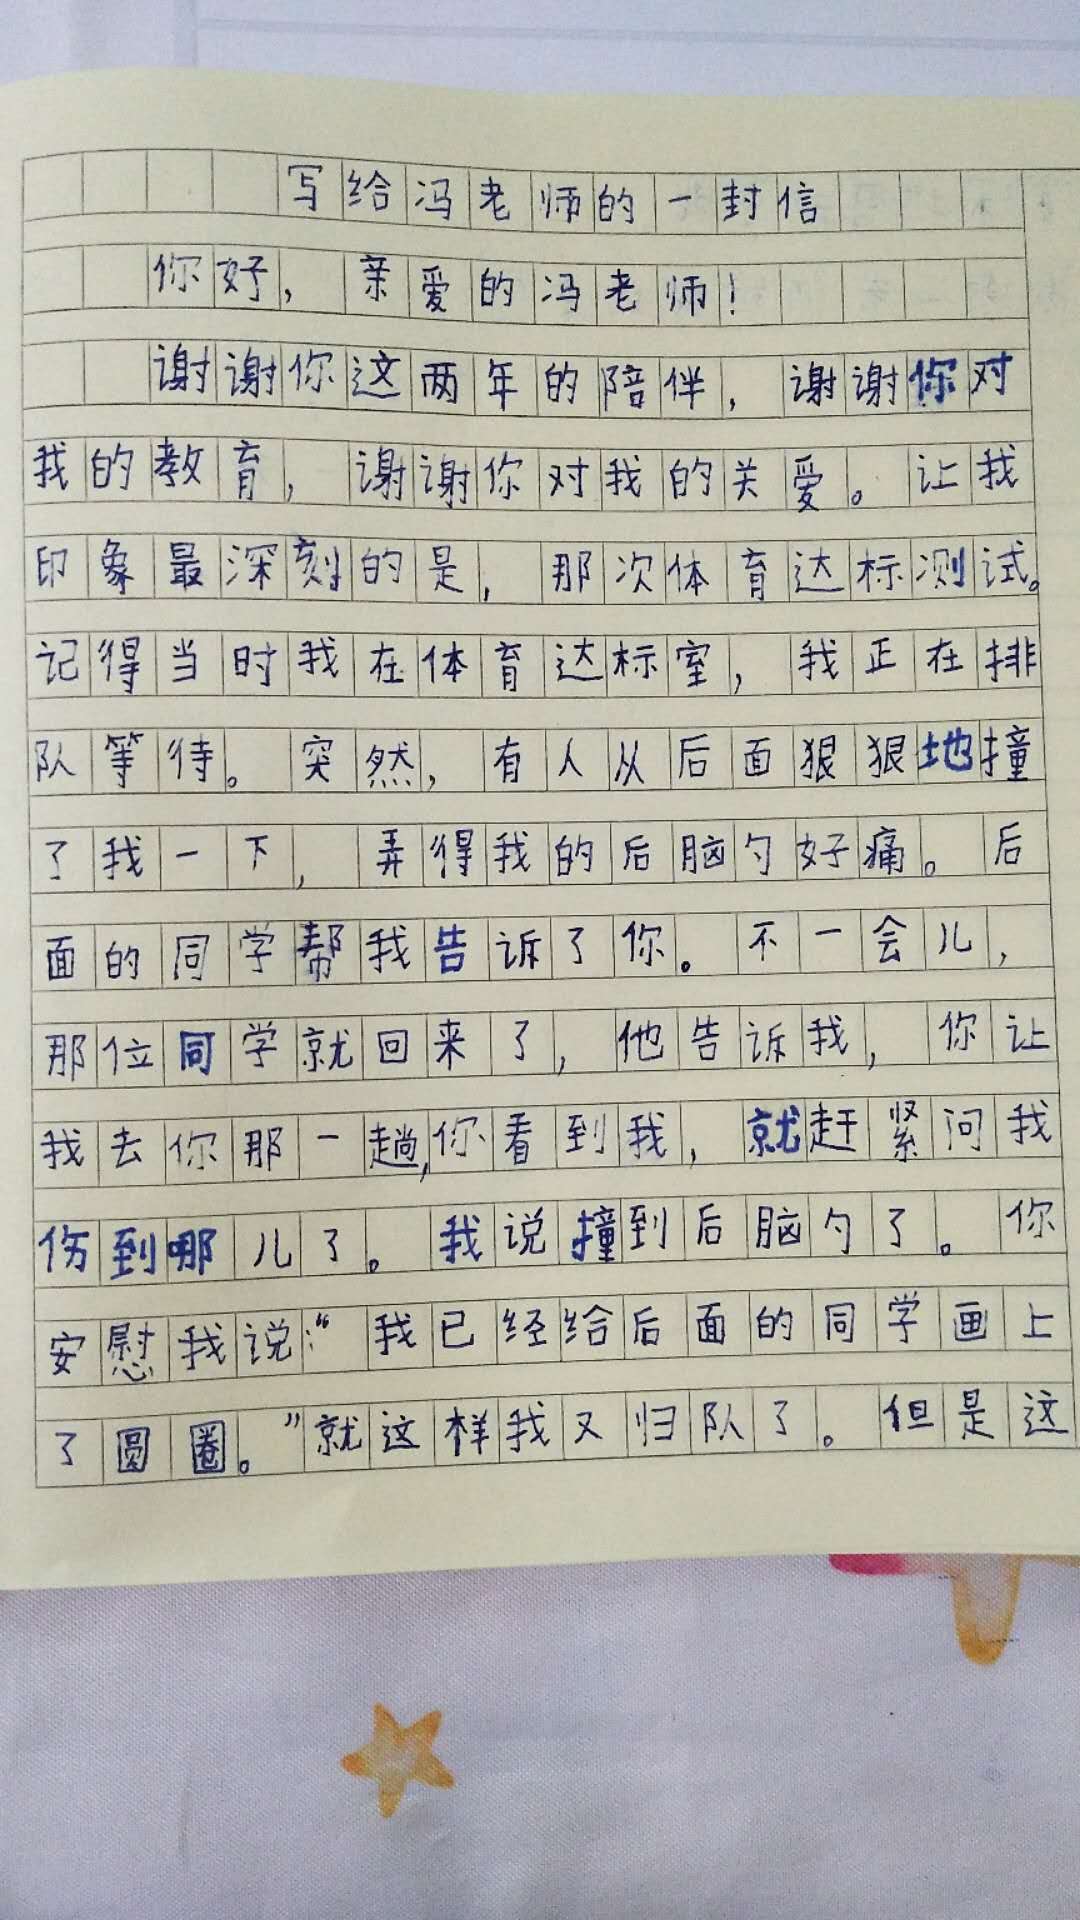 写给冯老师的一封信
你好，亲爱的冯老师！
谢谢你这两年的陪伴，谢谢你对
我的教育，谢谢你对我的关爱。让我
印象最深刻的是，那次体育达标测试。
记得当时我在体育达标室，我正在排
队等待。突然，有人从后面狠狠地撞
了我一下，弄得我的后脑勺好痛。后
面的同学帮我告诉了你。不一会儿，
那位同学就回来了，他告诉我，你让
我去你那一趟，你看到我，就赶紧问我
伤到哪儿了。我说撞到后脑勺了。你
安慰我说：“我已经给后面的同学画上
了圆圈。”就这样我又归队了。但是这